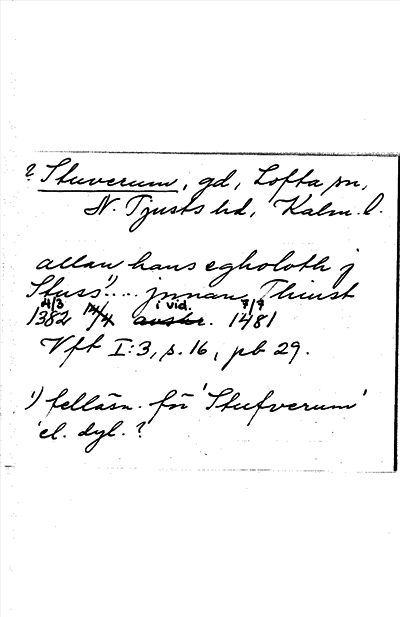 ? Stuverum, gd, Lofta sn,
N. Tjusts hd, Kalm. l.
allan hans egholoth j
Stuss¹).... jnnan Thiust
1382 4/3 i vid. 7/7 1481
Vft I:3, s. 16, pb 29.
¹) felläsn. för 'Stufverum'
el. dyl. ?